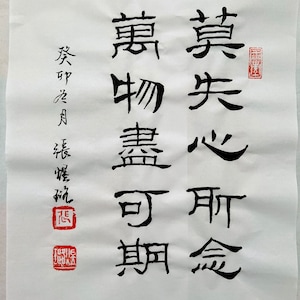 莫失心所念
萬物盡可期
癸卯冬月 張